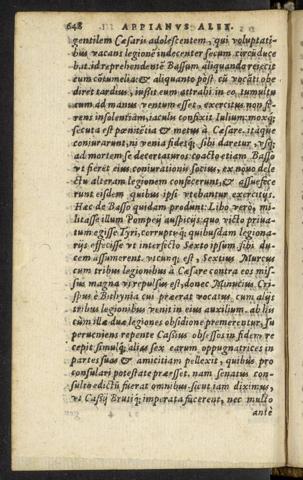 648 APPIANVS ALEX.
gentilem Cæsaris adolescentem, qui voluptati-
bus vacans legionē indecenter secum circūduce
bat. id reprehendentē Bassum aliquando reiecit
cum cōtumelia: & aliquanto pōst, cū vocāti obe
diret tardius, iussit eum attrahi. in eo tumultu
cum ad manus ventum esset, exercitus non fe-
rens insolentiam, iaculis confixit Iulium: moxq;
secuta est pœnitētia & metus à Cæsare. itaque
coniurarunt, ni venia fidesq; sibi daretur, vsq;
ad mortem se decertaturos: coacto etiam Basso
vt fieret eius coniurationis socius, ex nouo dele
ctu alteram legionem confecerunt, & assuefece
runt eisdem quibus ipsi vtebantur exercitijs.
Hæc de Basso quidam produnt: Libo verò, mi-
litasse illum Pompeij auspicijs, quo victo priua-
tum egisse Tyri, corruptisq; quibusdam legiona-
rijs effecisse vt interfecto Sexto ipsum sibi du-
cem assumerent. vtcunq; est, Sextius Murcus
cum tribus legionibus à Cæsare contra eos mis-
sus magna vi repulsus est, donec Minucius Cri-
spus è Bithynia cui præerat vocatus, cum alijs
tribus legionibus venit in eius auxilium. ab his
cùm illæ duæ legiones obsidione premerentur,
superueniens repente Cassius obsessos in fidem re
cepit simulq; alias sex earum oppugnatrices in
partes suas & amicitiam pellexit, quibus pro
consulari potestate præesset. nam senatus con-
sulto edictū fuerat omnibus, sicut iam diximus,
vt Cassij Brutiq; imperata facerent. nec multo
antè